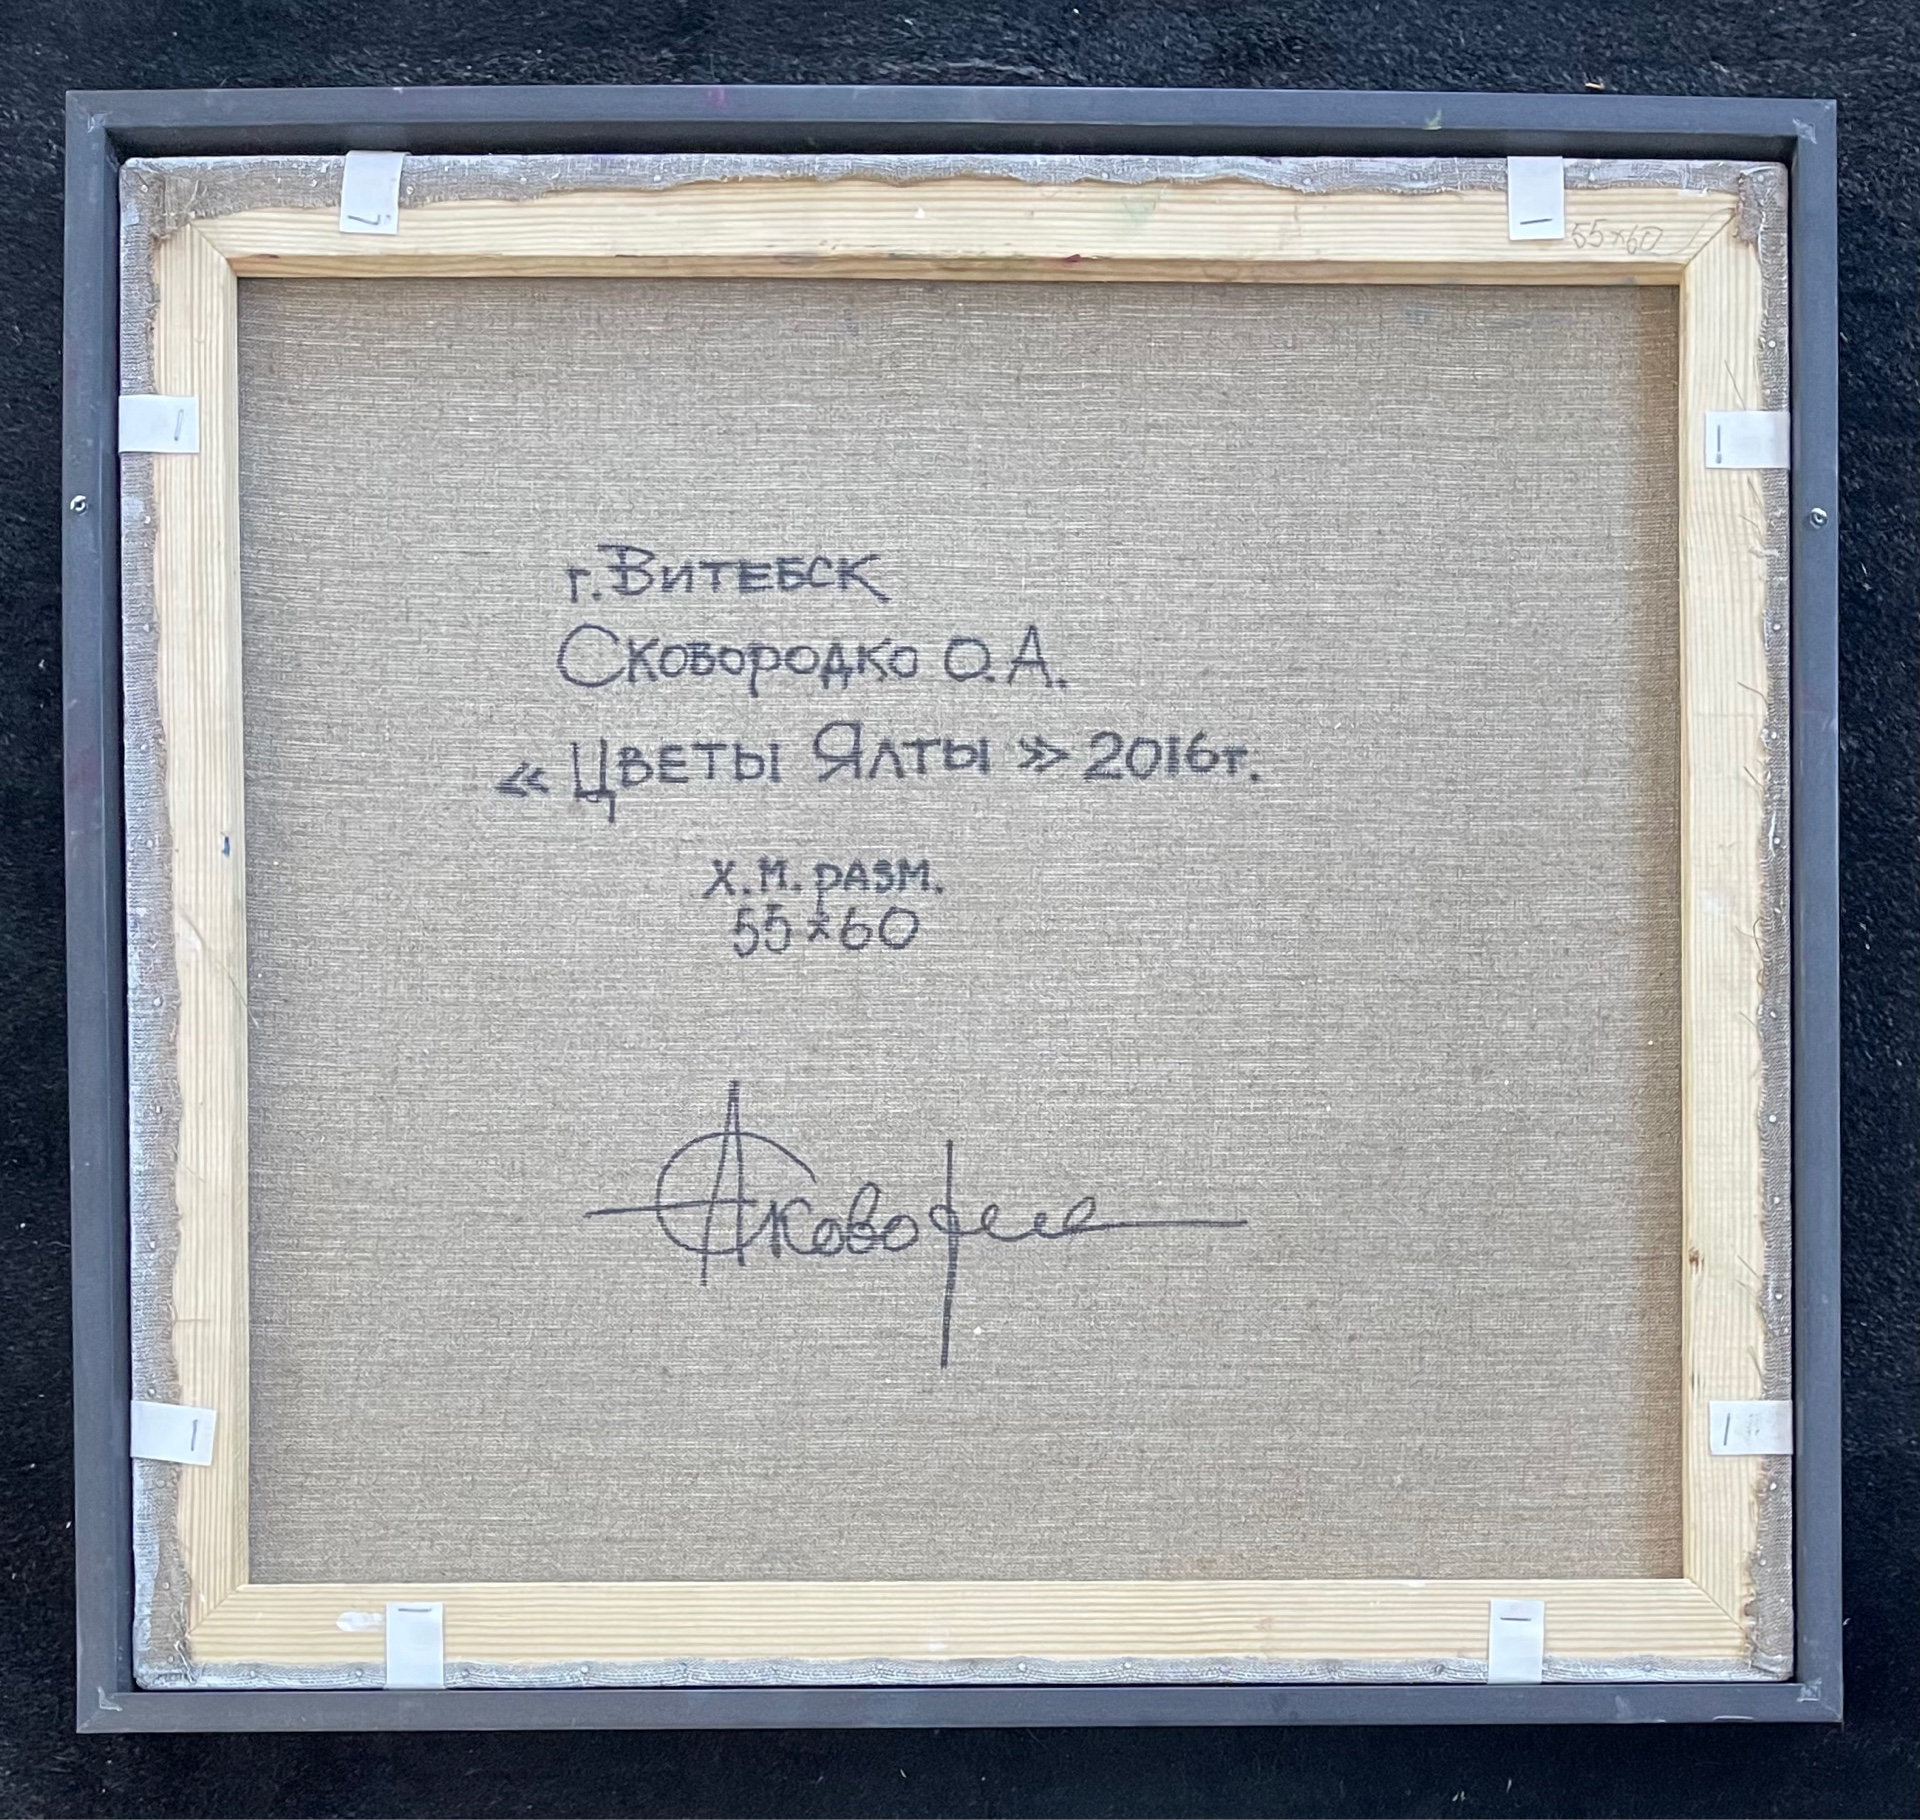 55×60
г. Витебск
Сковородко О.А.
« Цветы Ялты » 2016г.
х.м. разм.
55×60